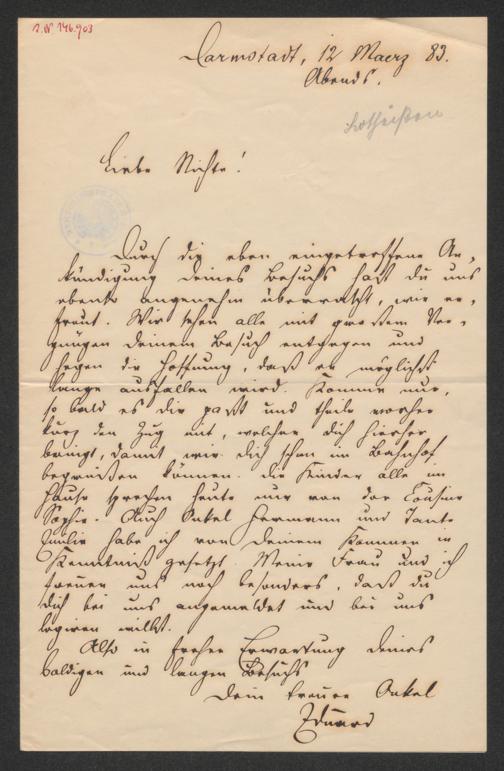 I.N. 146.903
Darmstadt, 12 Maerz 83.
Abends.
Lotheißen
Liebe Nichte!
Durch die eben eingetroffene An-
kündigung deines Besuchs hast du uns
ebenso angenehm überrascht, wie er-
freut. Wir sehen alle mit großem Ver-
gnügen deinem Besuch entgegen und
hegen die Hoffnung, daß er möglichst
lange ausfallen wird. Komme nur,
so bald es dir paßt und theile vorher
kurz den Zug mit, welcher dich hierher
bringt, damit wir dich schon im Bahnhof
begrüßen können. Die Kinder alle im
Hause sprechen heute nur von der Cousine
Sophie. Auch Onkel Hermann und Tante
Emilie habe ich von deinem Kommen in
Kenntniß gesetzt. Meine Frau und ich
freuen uns noch besonders, daß du
dich bei uns angemeldet und bei uns
logiren willst.
Also in froher Erwartung deines
baldigen und langen Besuchs
Dein treuer Onkel
Eduard